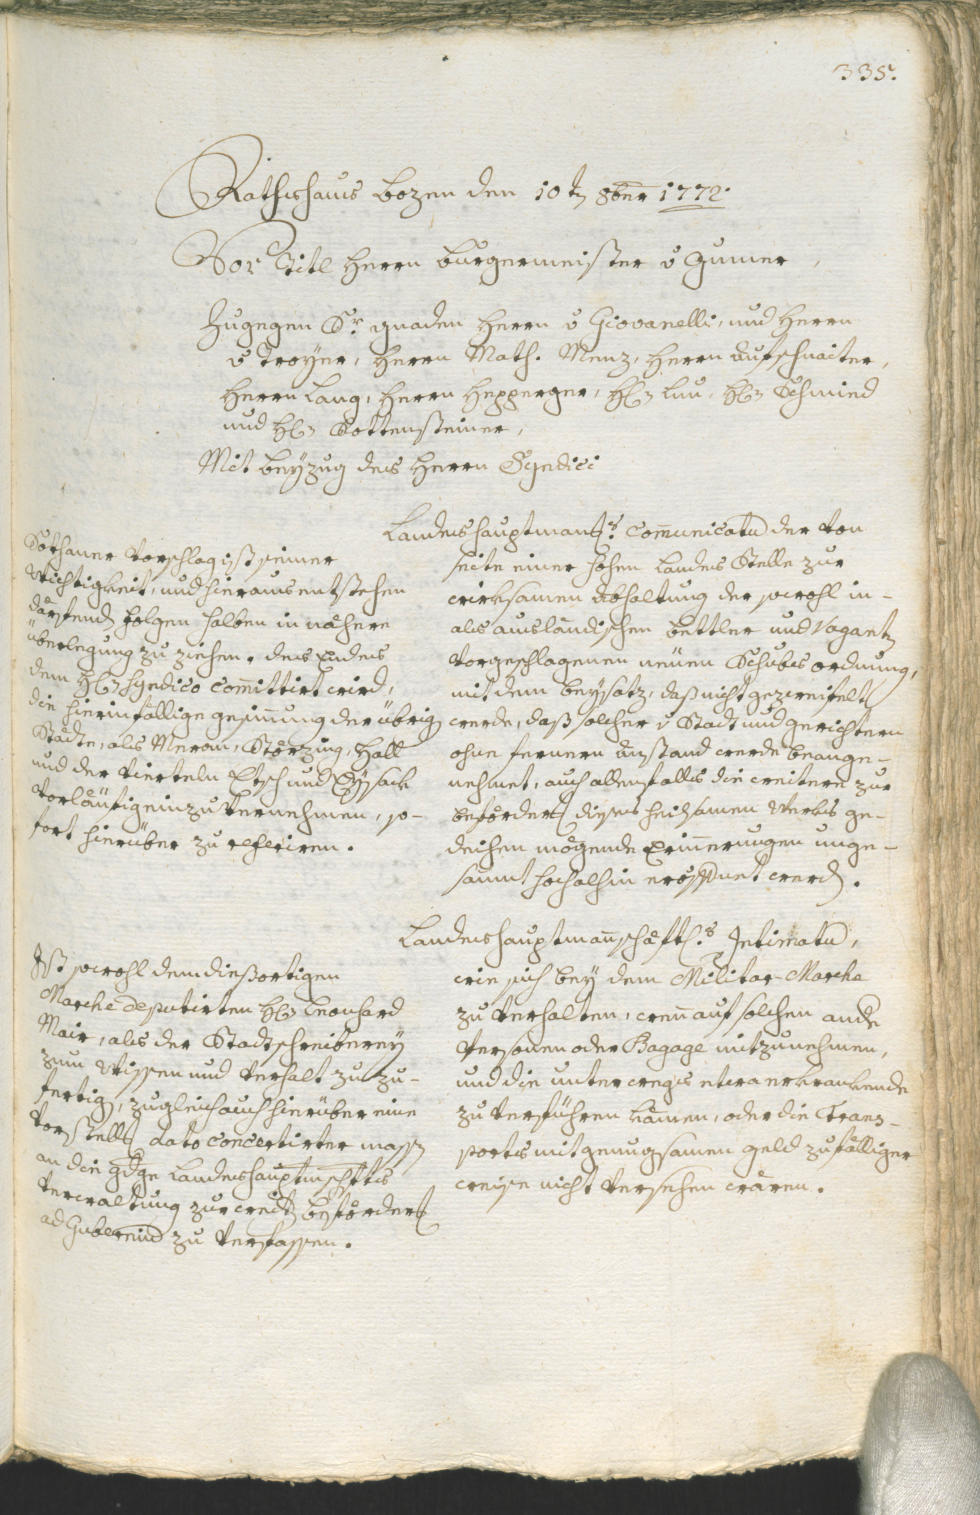 335.
Rathshaus bozen den 10t 8ber 1772
Vor Titl Herrn burgermeister v Gumer,
Zugegen Sr gnaden Herrn v Giovanelli, und Herrn
v Troÿer, Herrn Math. Menz, Herrn aufschnaiter,
Herrn Lang, Herrn Hepperger, H: Schmied
und H: Kottensteiner,
Mit beÿzug des Herrn Syndici
Landeshauptmants: Comunicatu der von
seite einer hohen Landes Stelle zur
wirksamen abhaltung der sowohl in-
als ausländischen bettler und Vagantn
vorgeschlagenen neüen Schubs ordnung,
mit dem beÿsatz, daß nicht gezweifelt
werde, daß solcher v Stadt und gerichtern
ohne fernern anstand werde beange-
nehmet, auch allenfalls die weitere zur
beförder dieses heilsamen Werks ge-
deihen mögende Erinnerungen unge-
saumt hochdahin eröffnet werd.
Sothaner vorschlag ist seiner
Wichtigkeit, und hieraus entstehen
därffend folgen halben in nähere
überlegung zu ziehen. des Endes
dem H: Syndico comittirt wird,
die hierinfällige gesinnung der übrig
Städte, als Meran, Störzing, Hall
und der vierteln Etsch und Eÿsack
vorläufig einzuvernehmen, so-
fort hierüber zu referiren.
Landeshauptmanschäftl:s Intimatu,
wie sich beÿ dem Militar-Marche
zu verhalten, wenn auf solchen ande
Personen oder Bagage mitzunehmen,
und die unterwegs etwa erkrankende
zu verführen kämen, oder die Trans-
ports mit genugsamen geld zufälliger
weise nicht versehen wären.
Ist sowohl dem dießortigen
Marche deputirten H: Leonhard
Mair, als der Stadtschreibereÿ
zum Wissen und verhalt zuzu-
fertig, zugleich auch hierüber eine
Vorstell dato concertirter mass
an die gdge Landeshauptmschfts
verwaltung zur weit beförder
ad Guberniu zu verfassen.